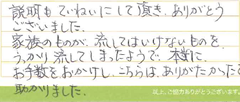 説明もていねいにして頂き、ありがとう
ございました。
家族のものが、流してはいけないものを、
うっかり流してしまったようで、本当に
お手数をおかけし、こちらは、ありがたかったで
助かりました。
以上、ご協力ありがとうございます。